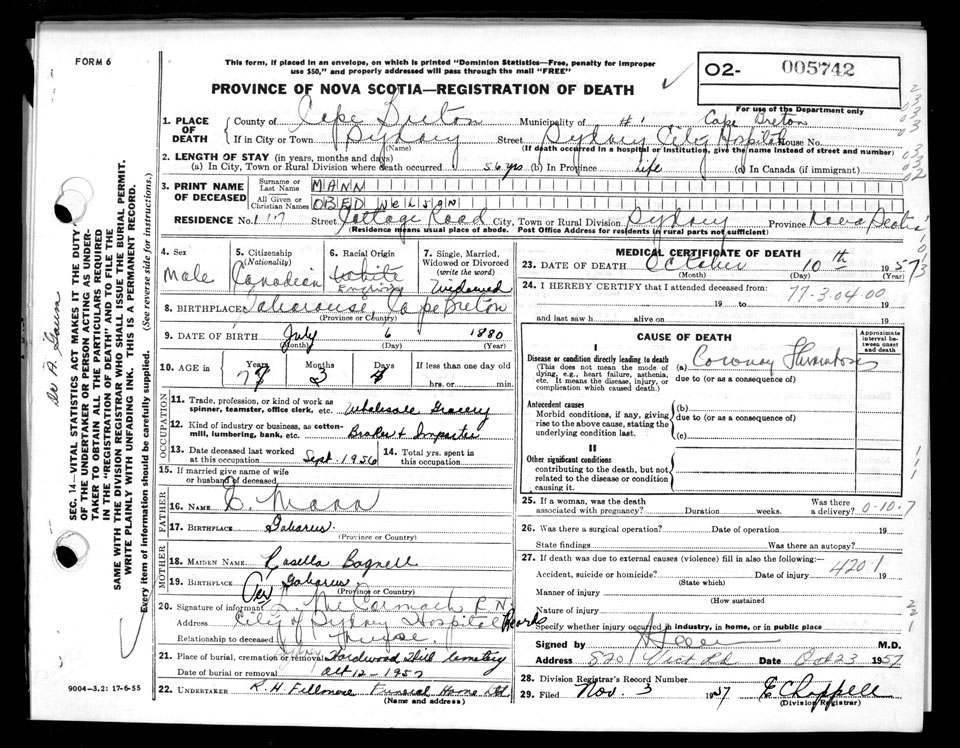 FORM 6
This form, if placed in an envelope, on which is printed "Dominion Statistics—Free, penalty for improper
use $50," and properly addressed will pass through the mail "FREE"
02- 005742
PROVINCE OF NOVA SCOTIA—REGISTRATION OF DEATH
For use of the Department only
1. PLACE OF DEATH
County of Cape Breton Municipality of #1 Cape Breton
If in City or Town Sydney Street Sydney City Hospital House No.
(Name) (If death occurred in a hospital or institution, give the name instead of street and number)
2. LENGTH OF STAY (in years, months and days)
(a) In City, Town or Rural Division where death occurred 56 yrs (b) In Province life (c) In Canada (if immigrant)
3. PRINT NAME OF DECEASED
Surname or Last Name MANN
All Given or Christian Names OBED NELSON
RESIDENCE No. 117 Street Cottage Road City, Town or Rural Division Sydney Province Nova Scotia
(Residence means usual place of abode. Post Office Address for residents in rural parts not sufficient)
4. Sex Male
5. Citizenship (Nationality) Canadian
6. Racial Origin White English
7. Single, Married, Widowed or Divorced (write the word) Widowed
8. BIRTHPLACE Gabarouse, Cape Breton
(Province or Country)
9. DATE OF BIRTH July 6 1880
(Month) (Day) (Year)
10. AGE in Years 77 Months 3 Days 4 If less than one day old
hrs. or min.
OCCUPATION
11. Trade, profession, or kind of work as
spinner, teamster, office clerk, etc. Wholesale Grocery
12. Kind of industry or business, as cotton-
mill, lumbering, bank, etc. Broker & Importer
13. Date deceased last worked
at this occupation Sept. 1956
14. Total yrs. spent in
this occupation
15. If married give name of wife
or husband of deceased
FATHER
16. NAME Mann
17. BIRTHPLACE Gabarus
(Province or Country)
MOTHER
18. MAIDEN NAME Rosella Bagnell
19. BIRTHPLACE Gabarus
(Province or Country)
20. Signature of informant McCormack R.N.
Address City of Sydney Hospital Records
Relationship to deceased Nurse
21. Place of burial, cremation or removal Hardwood Hill Cemetery
Date of burial or removal Oct 12-1957
22. UNDERTAKER R. H. Fillmore Funeral Home Ltd.
(Name and address)
MEDICAL CERTIFICATE OF DEATH
23. DATE OF DEATH October 10th 1957
(Month) (Day) (Year)
24. I HEREBY CERTIFY that I attended deceased from:
77-3-04-00
19 to 19
and last saw h alive on 19
CAUSE OF DEATH
Approximate interval between onset and death
I
Disease or condition directly leading to death
(This does not mean the mode of
dying, e.g., heart failure, asthenia,
etc. It means the disease, injury, or
complication which caused death.)
(a) Coronary Thrombosis
due to (or as a consequence of)
Antecedent causes
Morbid conditions, if any, giving
rise to the above cause, stating the
underlying condition last.
(b)
due to (or as a consequence of)
(c)
II
Other significant conditions
contributing to the death, but not
related to the disease or condition
causing it.
25. If a woman, was the death
associated with pregnancy? Duration weeks. Was there
a delivery? 0-10-7
26. Was there a surgical operation? Date of operation 19
State findings Was there an autopsy?
27. If death was due to external causes (violence) fill in also the following:
4201
Accident, suicide or homicide? Date of injury 19
(State which)
Manner of injury
(How sustained
Nature of injury
Specify whether injury occurred in industry, in home, or in public place
Signed by M.D.
Address 520 Vict Rd Date Oct 23 1957
28. Division Registrar's Record Number
29. Filed Nov. 3 1957 E Chappell
(Division Registrar)
9004-3.2: 17-6-55
SEC. 14—VITAL STATISTICS ACT MAKES IT THE DUTY
OF THE UNDERTAKER OR PERSON ACTING AS UNDER-
TAKER TO OBTAIN ALL THE PARTICULARS REQUIRED
IN THE "REGISTRATION OF DEATH" AND TO FILE THE
SAME WITH THE DIVISION REGISTRAR WHO SHALL ISSUE THE BURIAL PERMIT.
WRITE PLAINLY WITH UNFADING INK. THIS IS A PERMANENT RECORD.
Every item of information should be carefully supplied. (See reverse side for instructions.)